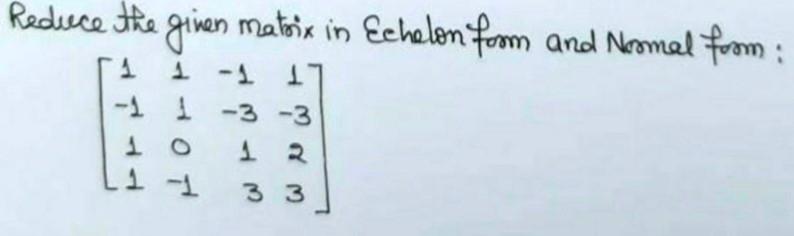 Reduce the given matrix in Echelon form and Normal form :
1 1 -1 1
-1 1 -3 -3
1 0 1 2
1 -1 3 3